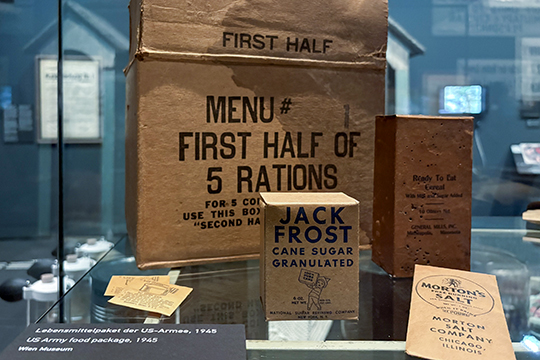 FIRST HALF
MENU# 1
FIRST HALF OF
5 RATIONS
FOR 5 CO
USE THIS BOX
"SECOND HA
JACK
FROST
CANE SUGAR
GRANULATED
NATIONAL SUGAR REFINING COMPANY
NEW YORK, N.Y.
Ready To Eat
Cereal
With Milk and Sugar Added
GENERAL MILLS, INC.
Minneapolis, Minnesota
MORTON'S
SALT
MORTON
SALT COMPANY
CHICAGO,
ILLINOIS
Lebensmittelpaket der US-Armee, 1945
US Army food package, 1945
Wien Museum